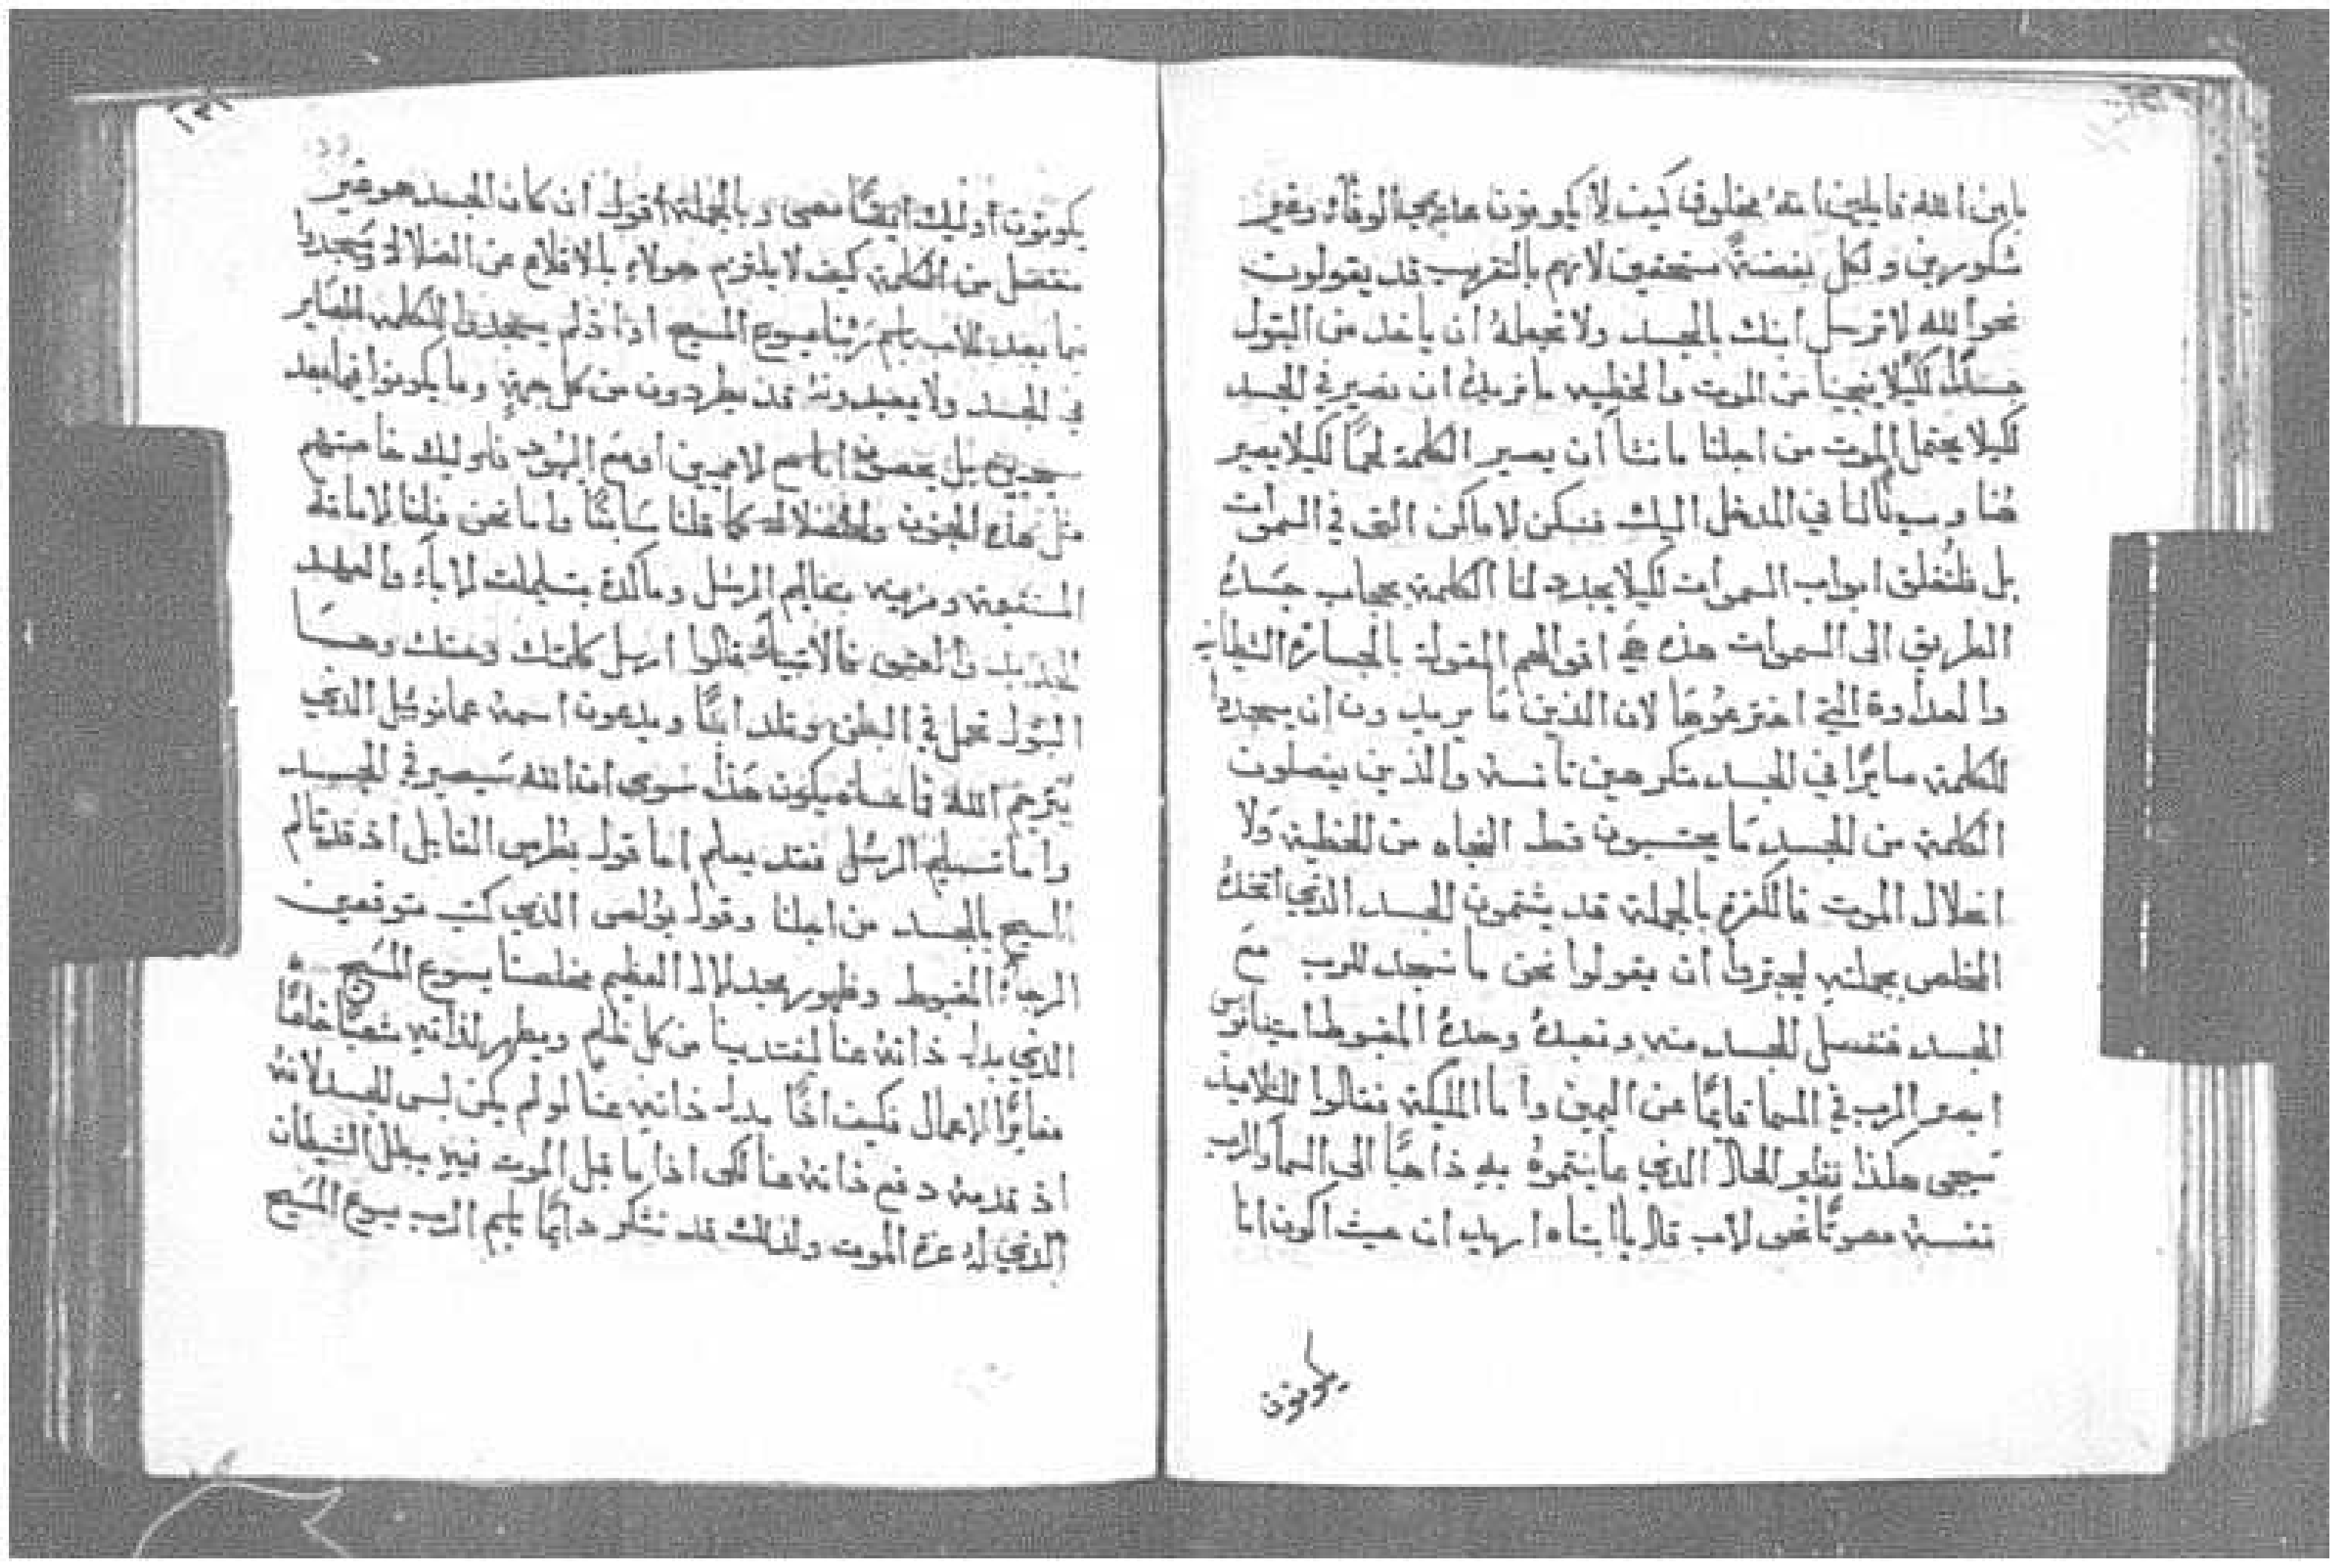 بابن الله قايلين انه مخلوق كيف لا يكونون عادمي الوفاء وغير
شكورين ولكل بغضة مستحقين لانهم بالتقريب قد يقولون
نحو الله لا ترسل ابنك بالجسد ولا تجعله ان ياخد من البتول
جسدًا لكيلا ينجينا من الموت والخطيه ما نريده ان يصير في الجسد
لكيلا يحتمل الموت من اجلنا ما نشأ ان يصير الكلمة لحمًا لكيلا يصير
هنا وسيطًا لنا في المدخل اليك فنسكن الاماكن التي في السموات
بل فلتُغلق ابواب السموات لكيلا يجدد لنا الكلمة بحجاب جسده
الطريق الى السموات هذه هي اقوالهم المقولة بالجسارة الشيطانيه
والعداوة التي اخترعوها لان الذين ما يريدون ان يسجدوا
للكلمة صايرًا في الجسد متكرهين تانسه والذين يفصلون
الكلمة من الجسد ما يحتسبون قط النجاه من الخطية ولا
انحلال الموت فالكفرة بالجملة قد يشتمون الجسد الذي اتخذه
المخلص بجملته ليجتروا ان يقولوا نحن ما نسجد للرب مع
الجسد فنفصل الجسد منه ونعبده وحده المغبوط استفانوس
ابصر الرب في السما قايمًا عن اليمين واما المليكة فقالوا للتلاميذ
سيجى هكذا نظير الحال الذي عاينتموه به ذاهبًا الى السما والرب
نفسه مصوتًا نحو الاب قال يا ابتاه اريد ان حيث اكون انا
يكونون
يكونون اوليك ايضًا معى وبالجملة اقول ان كان الجسد هو غير
منفصل من الكلمة كيف لا يلتزم هولاء بالاقلاع عن الضلالة ويسجدوا
فيما بعد للاب باسم ربنا يسوع المسيح او اذ لم يسجدوا للكلمة الصاير
في الجسد ولا يعبدونه قد يطردون من كل جهة وما يكونوا فيما بعد
مسيحيين بل يحصوا اما مع الامميين او مع اليهود فاوليك خاصتهم
مثل هذه الجنون والضلالة كما قلنا سابقًا واما نحن فلنا الامانة
المستقيمة ومزينه بتعاليم الرسل وماكدة بتسليمات الاباء والعهد
الجديد والعتيق فالانبياء قالوا ارسل كلمتك وحقك وها
البتول تحبل في البطن وتلد ابنًا ويدعون اسمه عمانوئيل الذي
يُترجم الله فما عساه يكون هذا سوى ان الله سيصير في الجسد
واما تسليم الرسل فقد يعلم اما قول بطرس القايل اذ قد تالم
المسيح بالجسد من اجلنا وقول بولص الذي كتب متوقعين
الرجاء المغبوط وظهور مجد الاله العظيم مخلصنا يسوع المسيح
الذي بدل ذاته عنا ليفتدينا من كل ظلم ويطهر لذاته شعبًا خاصًا
مغايرًا الاعمال فكيف اذًا بدل ذاته عنا لو لم يكن لبس الجسد لانه
اذ قدمه دفع ذاته عنا لكى اذا ما قبل الموت فيه يبطل الشيطان
الذي له عزة الموت ولذلك قد نشكر دايمًا باسم الرب يسوع المسيح